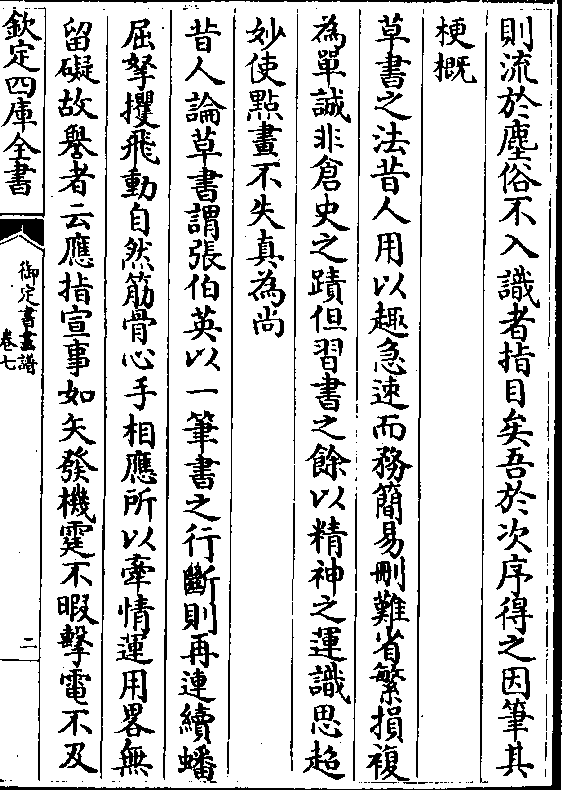 則流於塵俗不入識者指目矣吾於次序得之因筆其
梗概
草書之法昔人用以趣急速而務簡易刪難省繁損複
為單誠非倉史之蹟但習書之餘以精神之運識思超
妙使點畫不失真為尚
昔人論草書謂張伯英以一筆書之行斷則再連續蟠
屈拏攫飛動自然筋骨心手相應所以牽情運用畧無
留礙故譽者云應指宣事如矢發機霆不暇擊電不及
欽定四庫全書
御定書畫譜
卷七
二